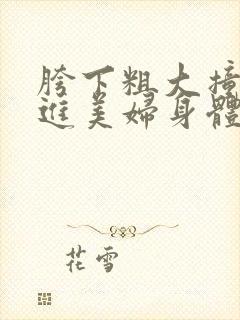 胯下粗大撞
進美婦身體
花雪